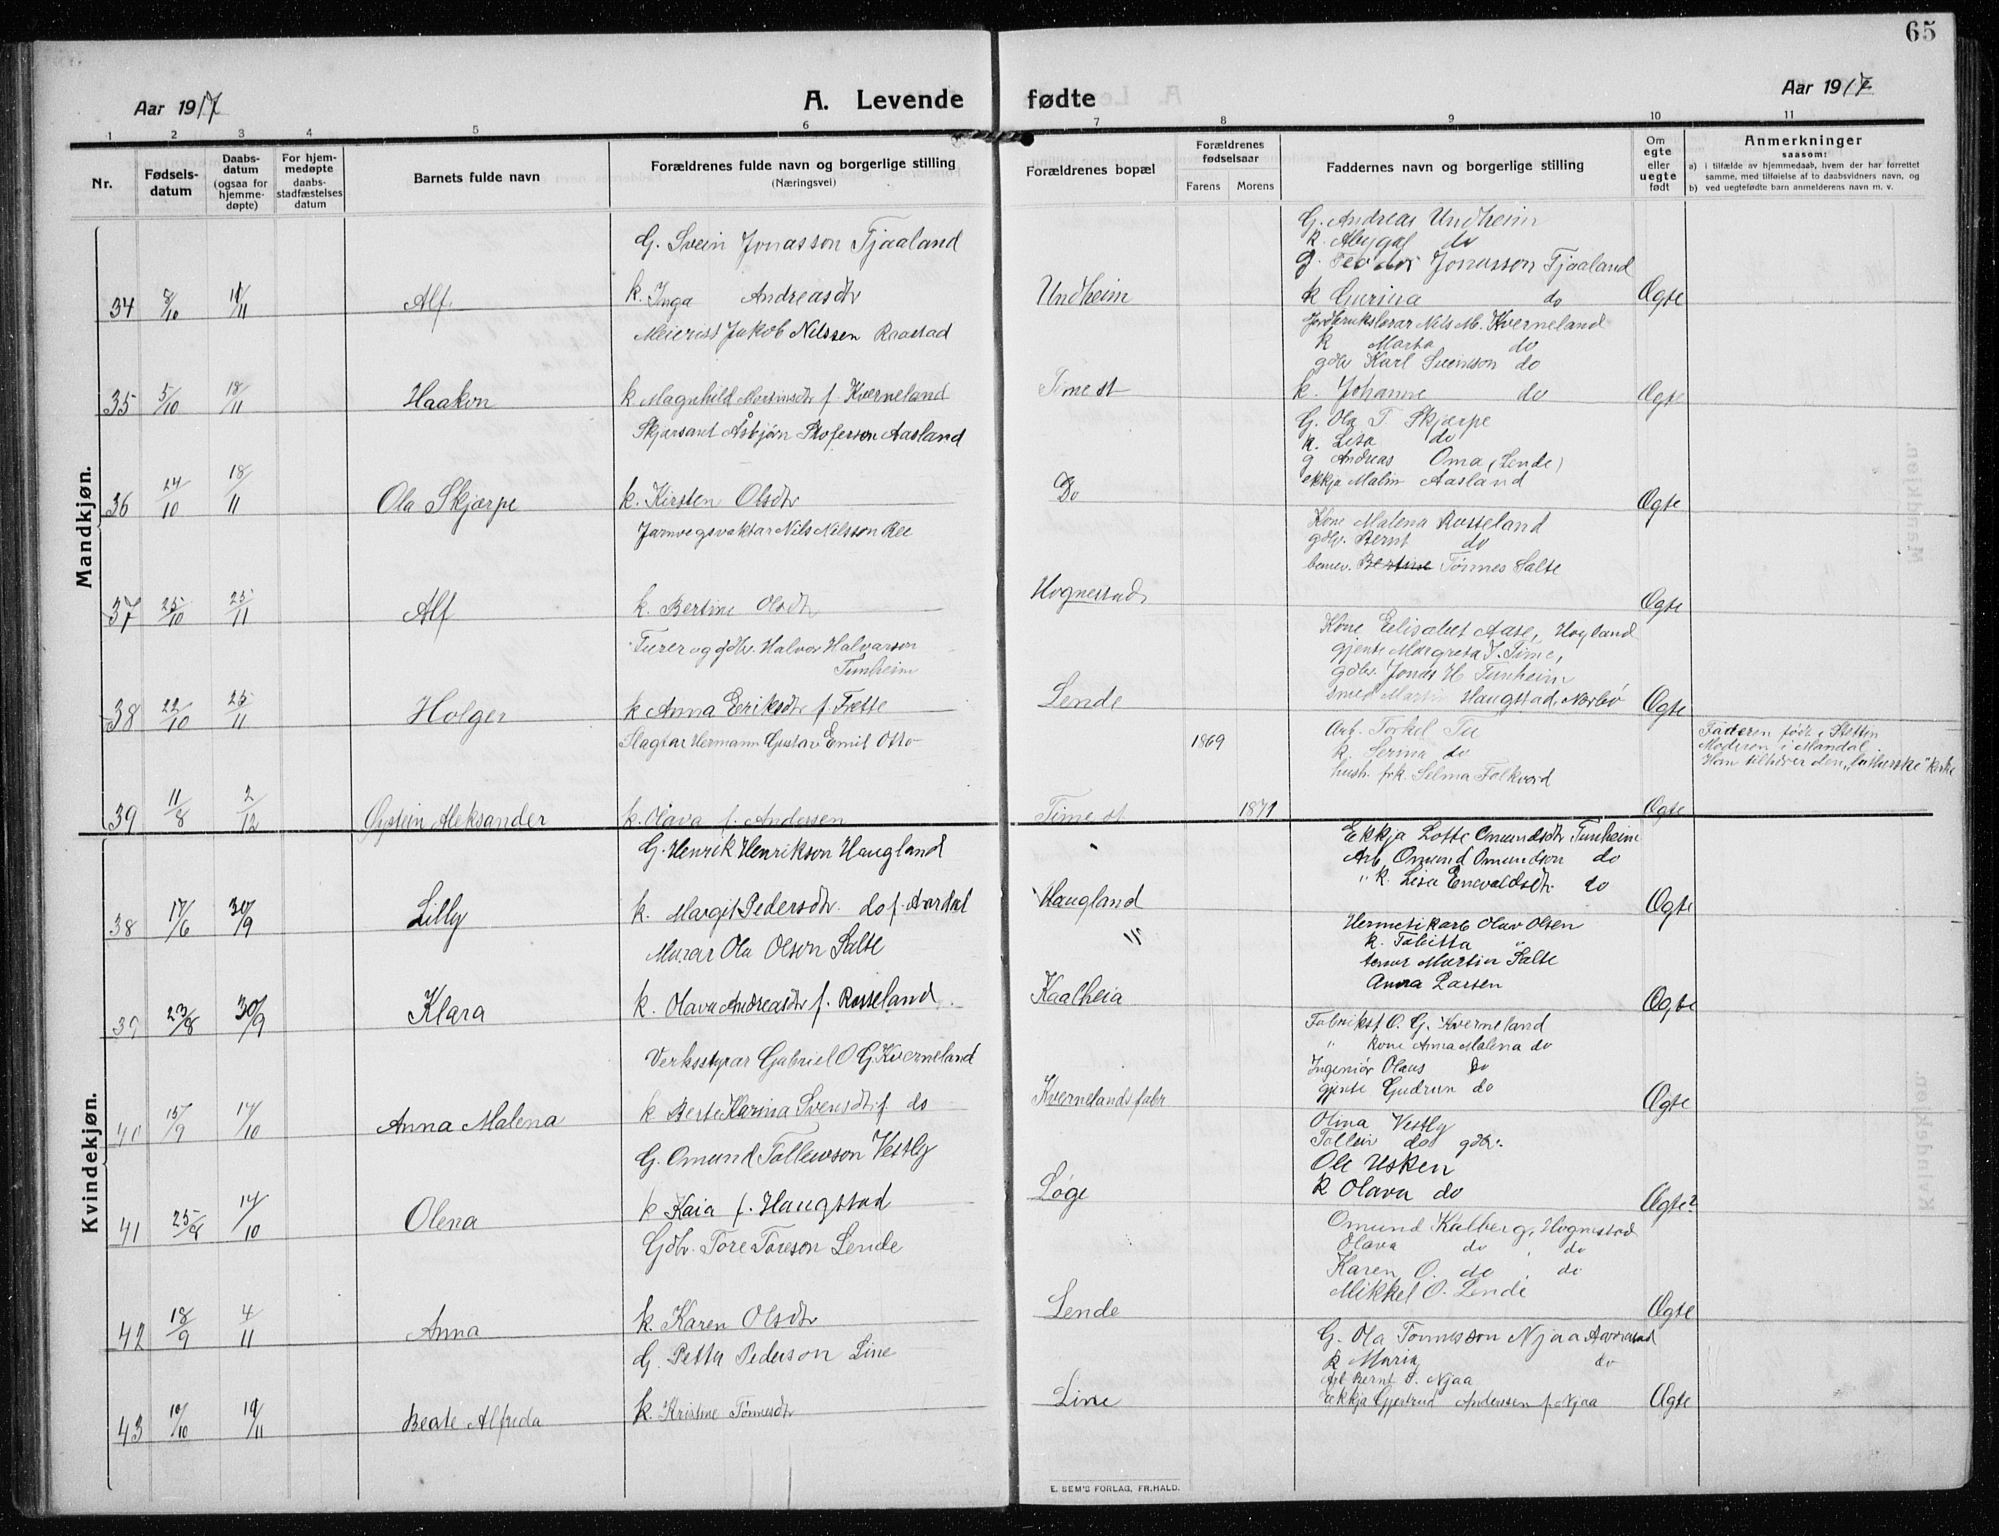 65
Aar 1917
A. Levende
fødte
Aar 1917
1 2 3 4 5 6 7 8 9 10 11
Nr.
Fødsels-
datum
Daabs-
datum
(ogsaa for
hjemme-
døpte)
For hjem-
medøpte
daabs-
stadfæstelses
datum
Barnets fulde navn
Forældrenes fulde navn og borgerlige stilling
(Næringsvei)
Forældrenes bopæl
Forældrenes
fødselsaar
Farens Morens
Faddernes navn og borgerlige stilling
Om
egte
eller
uegte
født
Anmerkninger
saasom:
a) i tilfælde av hjemmedaab, hvem der har forrettet
samme, med tilføielse af to daabsvidners navn, og
b) ved uegtefødte barn anmelderens navn m. v.
Mandkjøn.
G. Svein Jonasson Tjaaland
34 8/10 11/11 Alf k. Inga Andreasdtr
Undheim
G. Andreas Undheim
k. Abygal do
g. Teodor Jonasson Tjaaland
k Gurina do
Ægte
Meierist Jakob Nilssen Raastad
35 5/10 18/11 Haakon k Magnhild Martinsdtr f. Kverneland
Time st
Nils M. Kverneland
k Marta do
gdbr Karl Svensson do
k. Johanne do
Ægte
Asbjørn Aasland
36 24/10 18/11 Ola Skjærpe k. Kirsten Olsdtr
Do
G. Ola T. Skjærpe
k. Lisa do
g Andreas Oma (Lende)
ekkja Malin Aasland
Ægte
Jarnvegsvaktar Nils Nilsson Ree
37 25/10 25/11 Alf k. Bertine Olsdtr
Hognestad
Kone Malena Rosseland
gdbr. Bernt do
Bertine Tønnes Salte
Ægte
og gdbr. Halvor Halvarson
Tunheim
38 22/10 25/11 Holger k Anna Eriksdtr f. Fotte
Lende
Kone Elisabet Aase, Høyland
gjente Margreta J. Time,
gdbr. Jonas H Tunheim
smed Martin Haugstad, Nærbø
Ægte
Slagtar Hermann Gustav Emil Otto
39 11/8 2/12 Øystein Aleksander k. Olava f. Andersen
Time st
1869 1871
Arb. Torkel Tu
k. Serina do
hush. frk. Selma Folkvord
Ægte
Faderen født i Stettin
Moderen i Mandal.
Han tilhører den "lutherske" kirke
Kvindekjøn.
G. Henrik Henrikson Haugland
38 17/6 30/9 Lilly k. Margit Pedersdtr. do f. Aardal
Haugland
Ekkja Lotte Omundsdtr, Tunheim
Arb. Omund Omundson do
" k. Lisa Enevaldsdtr. do
Ægte
Murar Ola Olson Salte
39 23/8 30/9 Klara k. Olava Andreasdtr f. Rosseland.
Kaalheia
Hermetikarb Olav Olsen
k. Tabitta "
Martin Salte
Anna Larsen
Ægte
Verksstyrar Gabriel O G Kverneland
40 15/9 14/10 Anna Malena k Berte Karina Svensdtr f. do
Kvernelands fabr
Fabrikst O. G. Kverneland
" kone Anna Malena do
Ingeniør Olaus do
gjente Gudrun do
Ægte
G. Omund Tollevson Vestly
41 14/10 Olena k Kaia f. Haugstad
Løge
Olina Vestly
Tollein do gdbr.
Ole Usken
k Olava do
Ægte?
Gdbr. Tore Toreson Lende
42 18/9 4/11 Anna k. Karen Olsdtr
Lende
Omund Kalberg, Hognestad
Olava do , do
Karen O. do , do
Mikkel O. Lende
Ægte
G. Petter Pederson Line
43 10/10 Beate Alfreda k. Kristine Tønnesdtr
Line
G. Ola Tønnesson Njaa
k Maria do
Arb Bernt T. Njaa
Ekkja Gjertrud Andersen f. Njaa
Ægte
E. SEM'S FORLAG, FR.HALD.